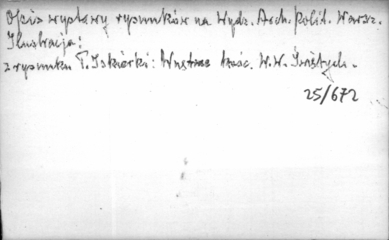 Opis wystawy rysunków na Wydz. Arch. polit. Warsz.
Ilustracja:
z rysunku T. Iskierki: Wnętrze kośc. W.W. Świętych.
25/672